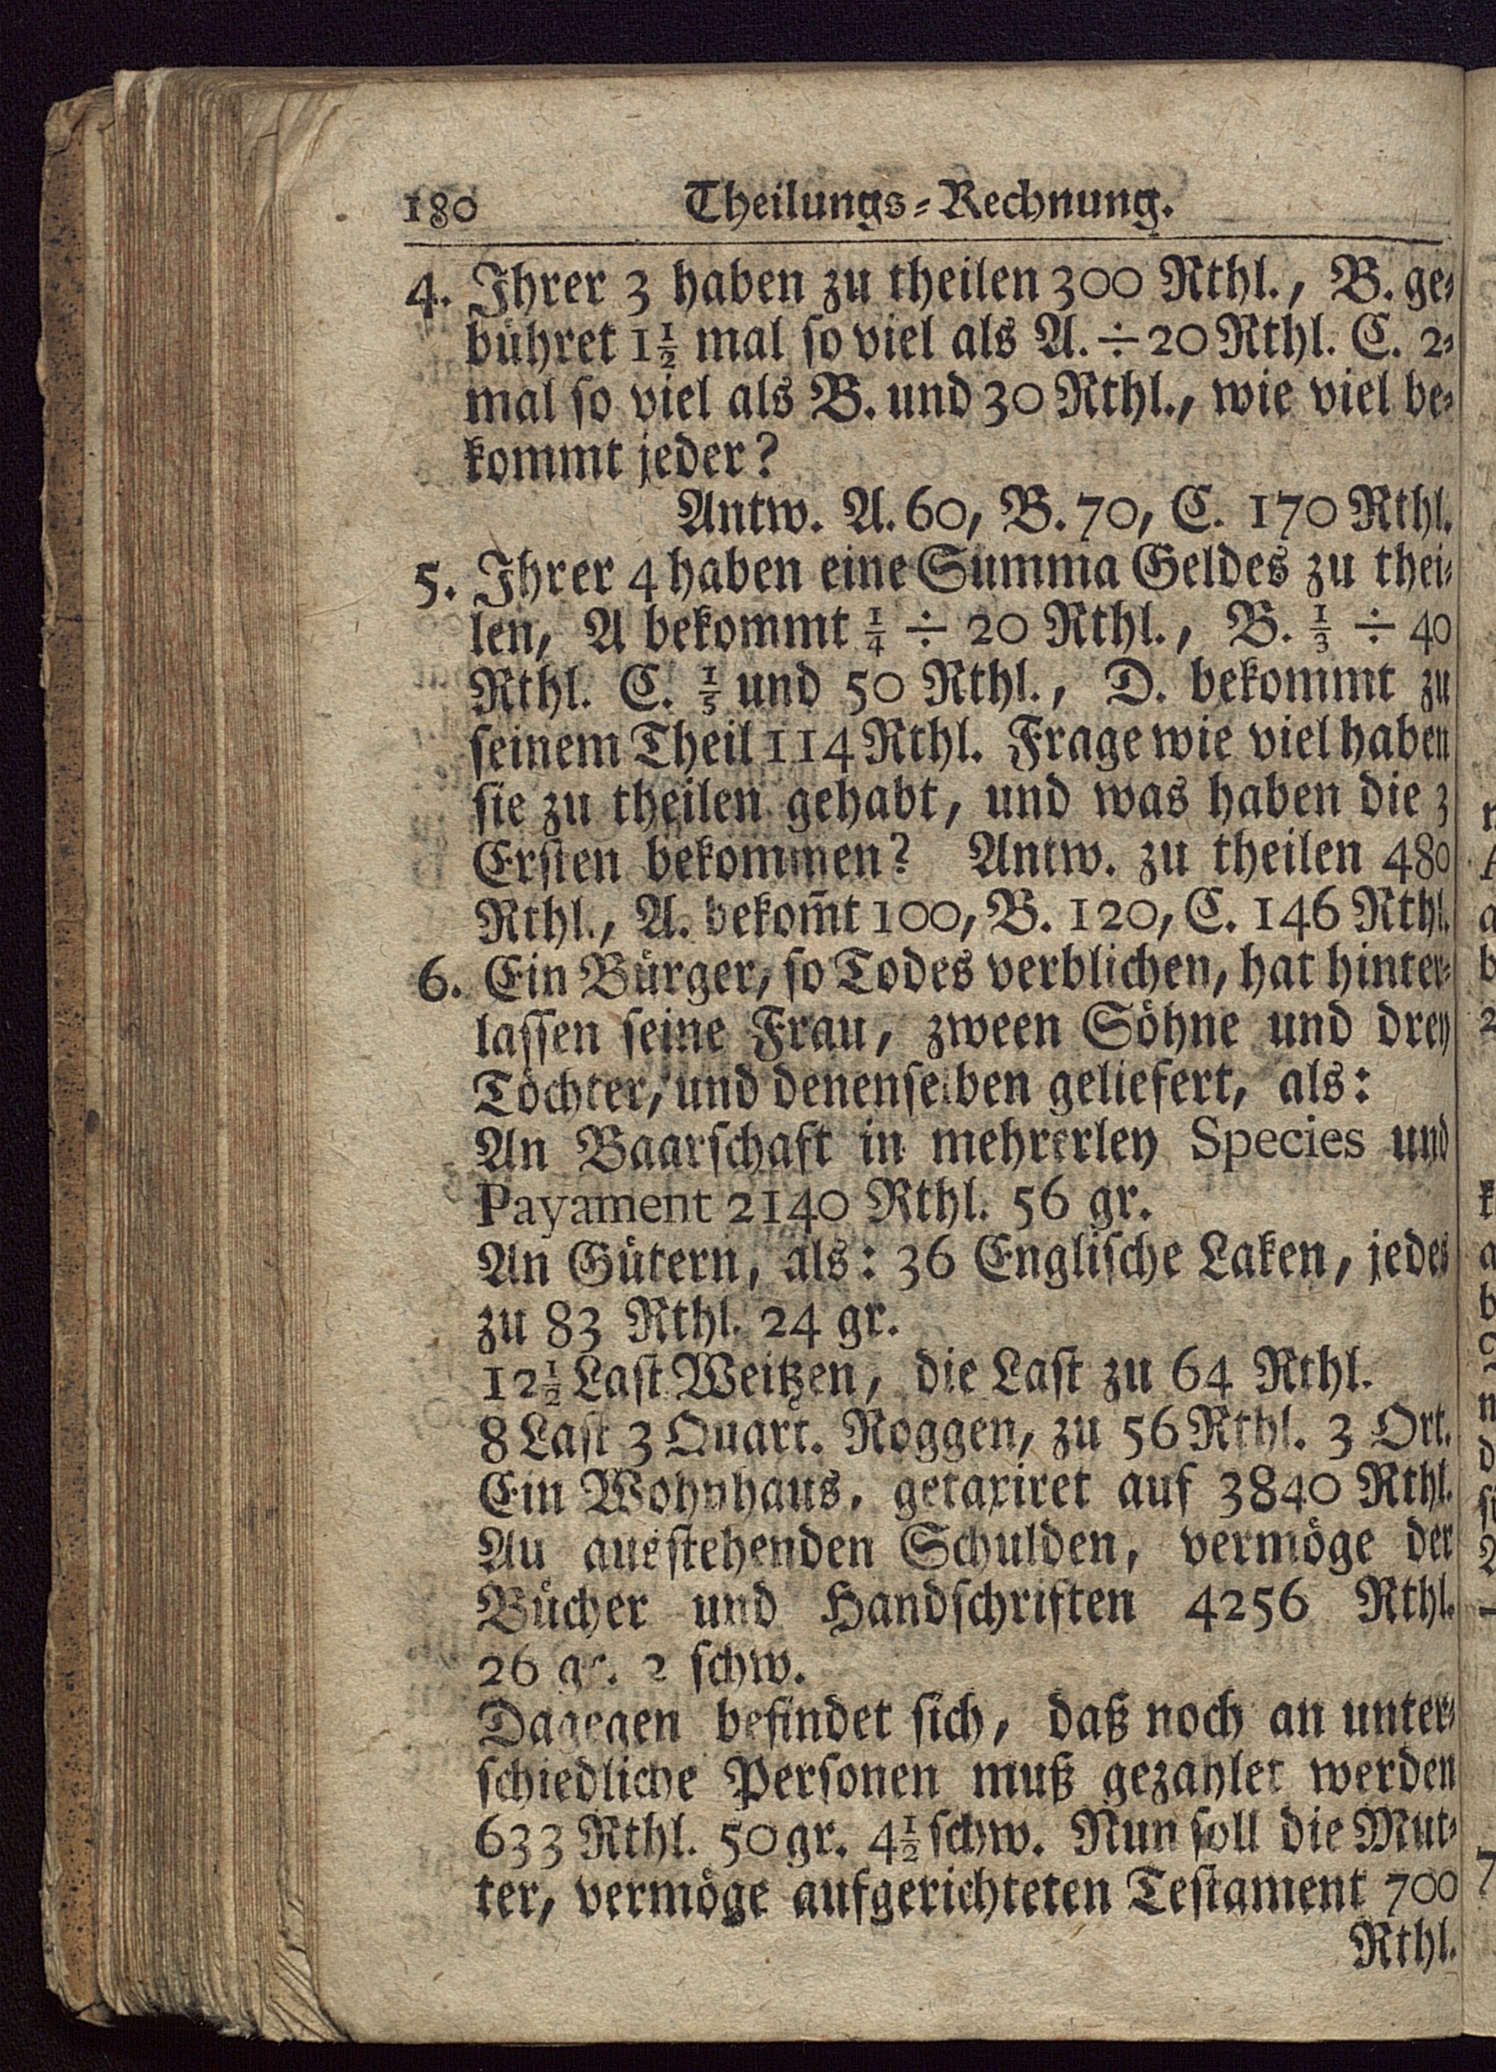 180 Theilungs-Rechnung.
4. Ihrer 3 haben zu theilen 300 Rthl., B. ge-
bühret 1½ mal so viel als A. ÷ 20 Rthl. C. 2-
mal so viel als B. und 30 Rthl., wie viel be-
kommt jeder?
Antw. A. 60, B. 70, C. 170 Rthl.
5. Ihrer 4 haben eine Summa Geldes zu thei-
len, A bekommt ¼ ÷ 20 Rthl., B. ⅓ ÷ 40
Rthl. C. ⅕ und 50 Rthl., D. bekommt zu
seinem Theil 114 Rthl. Frage wie viel haben
sie zu theilen gehabt, und was haben die 3
Ersten bekommen? Antw. zu theilen 480
Rthl., A. bekom̄t 100, B. 120, C. 146 Rthl.
6. Ein Bürger, so Todes verblichen, hat hinter-
lassen seine Frau, zween Söhne und drey
Töchter, und denenselben geliefert, als:
An Baarschaft in mehrerley Species und
Payament 2140 Rthl. 56 gr.
An Gütern, als: 36 Englische Laken, jedes
zu 83 Rthl. 24 gr.
12½ Last Weitzen, die Last zu 64 Rthl.
8 Last 3 Quart. Roggen, zu 56 Rthl. 3 Ort.
Ein Wohnhaus, getaxiret auf 3840 Rthl.
Au ausstehenden Schulden, vermöge der
Bücher und Handschriften 4256 Rthl.
26 gr. 2 schw.
Dagegen befindet sich, daß noch an unter-
schiedliche Personen muß gezahlet werden
633 Rthl. 50 gr. 4½ schw. Nun soll die Mut-
ter, vermöge aufgerichteten Testament 700
Rthl.